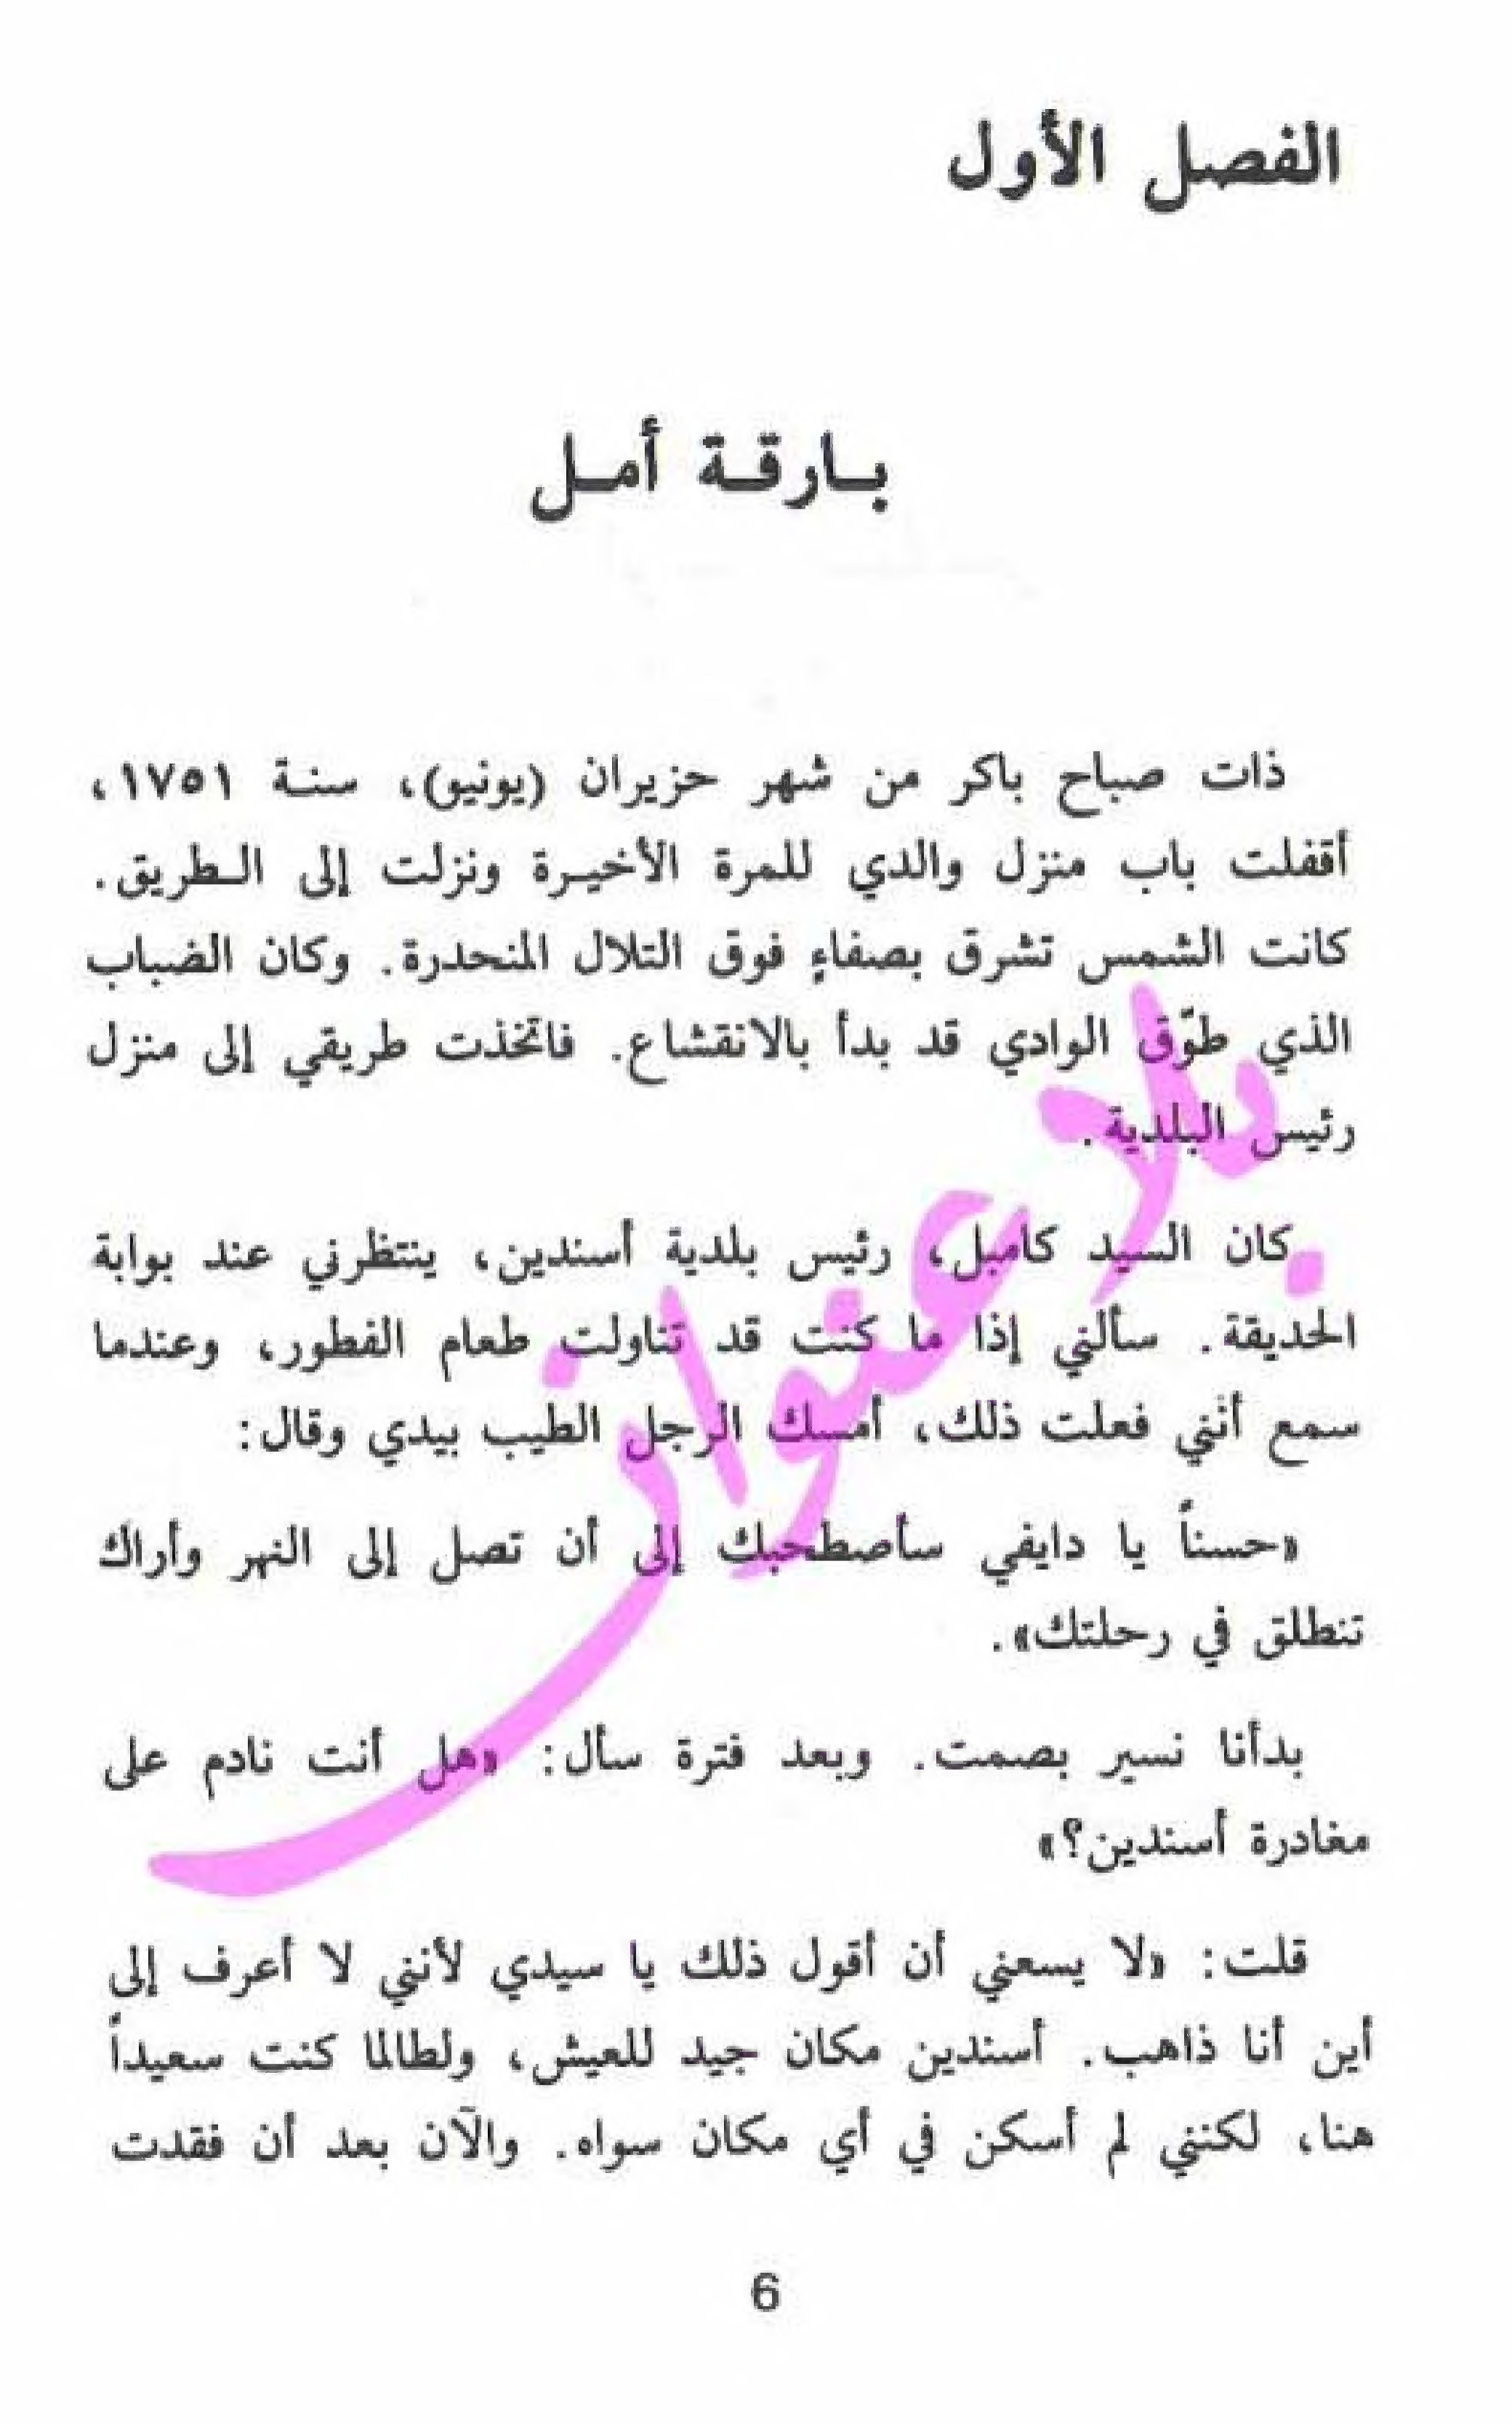 الفصل الأول
بارقة أمل
ذات صباح باكر من شهر حزيران (يونيو)، سنة ١٧٥١،
أقفلت باب منزل والدي للمرة الأخيرة ونزلت إلى الطريق.
كانت الشمس تشرق بصفاءٍ فوق التلال المنحدرة. وكان الضباب
الذي طوّق الوادي قد بدأ بالانقشاع. فاتّخذت طريقي إلى منزل
رئيس البلدية.
كان السيد كامبل، رئيس بلدية أسندين، ينتظرني عند بوابة
الحديقة. سألني إذا ما كنت قد تناولت طعام الفطور، وعندما
سمع أنّني فعلت ذلك، أمسك الرجل الطيب بيدي وقال:
«حسناً يا دايفي سأصطحبك إلى أن تصل إلى النهر وأراك
تنطلق في رحلتك».
بدأنا نسير بصمت. وبعد فترة سأل: «هل أنت نادم على
مغادرة أسندين؟»
قلت: «لا يسعني أن أقول ذلك يا سيدي لأنني لا أعرف إلى
أين أنا ذاهب. أسندين مكان جيد للعيش، ولطالما كنت سعيداً
هنا، لكنني لم أسكن في أي مكان سواه. والآن بعد أن فقدت
6
بلا عنوان